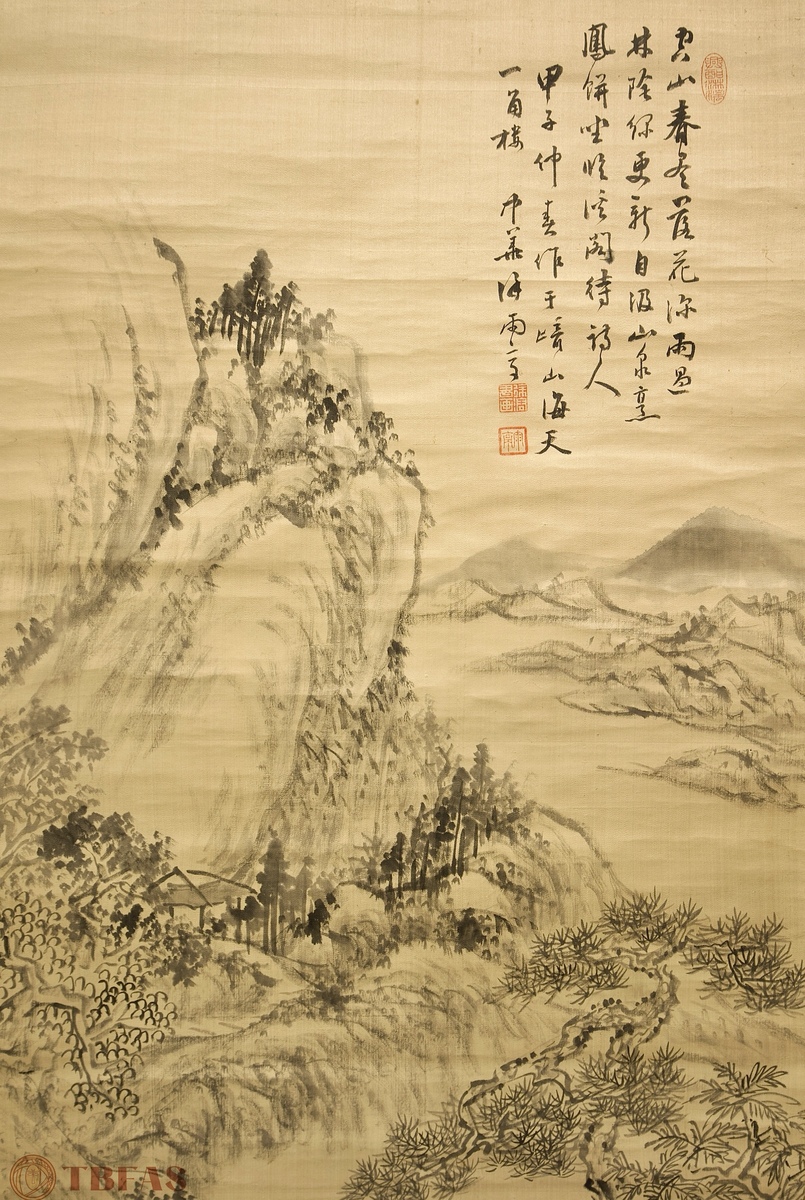 空山春尽落花深雨過
林陰緑更新自汲山泉烹
鳳餅坐臨溪閣待詩人
甲子仲春作于晴山海天
一角樓 中華
TBFAS